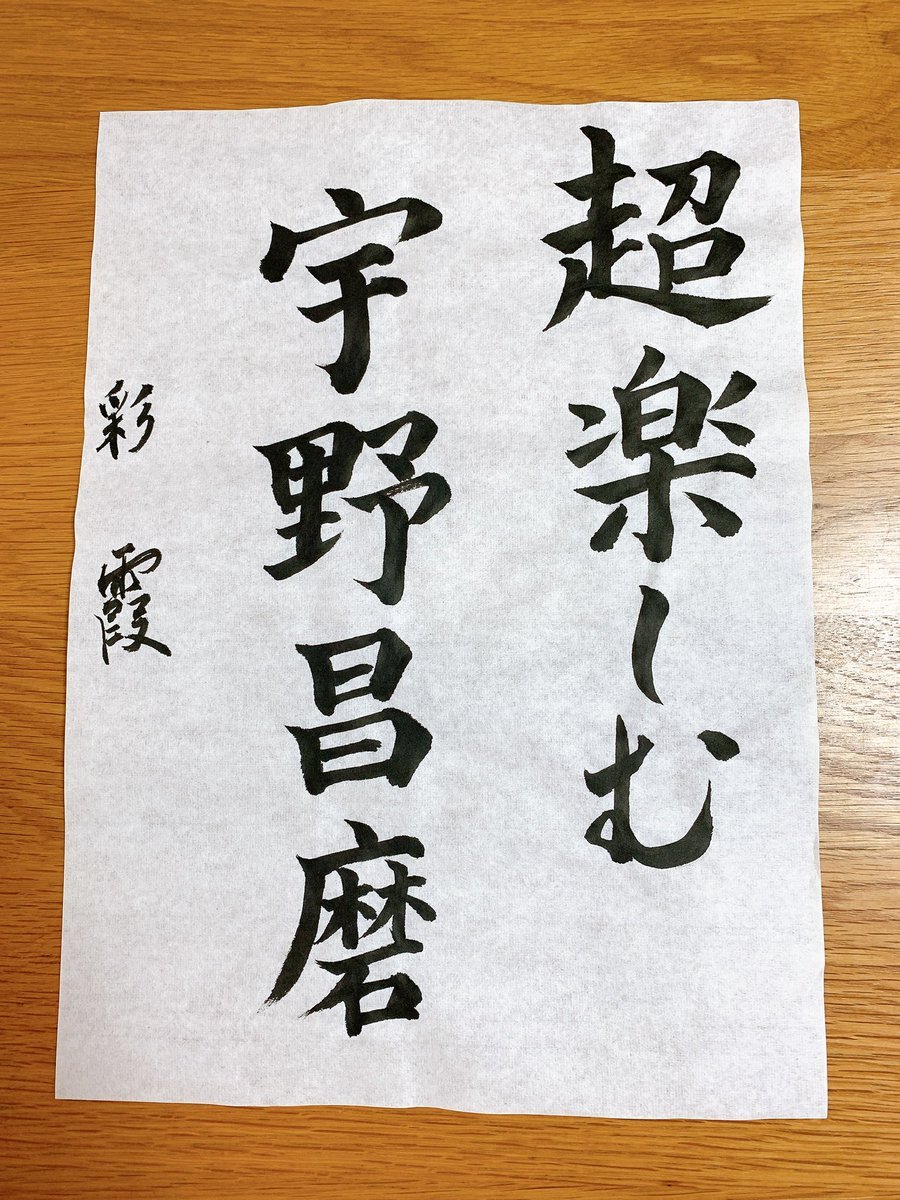 超楽しむ
宇野昌磨
彩霞